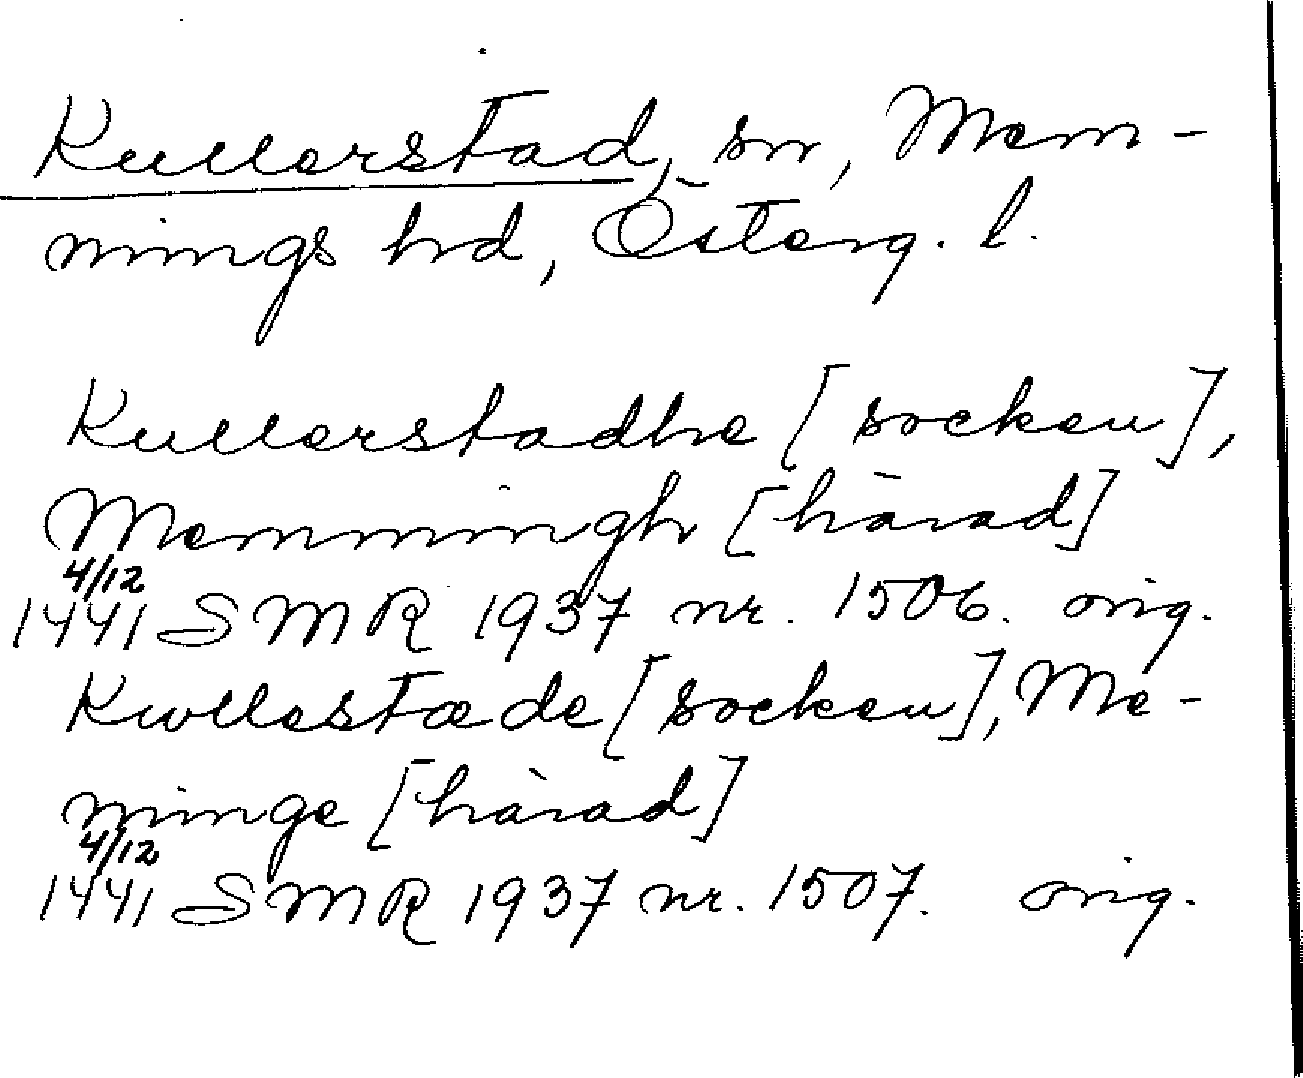 Kullerstad, sn, Mem-
mings hd, Österg. l.
Kullerstadhe [socken],
Memmingh [härad]
4/12
1441 SMR 1937 nr. 1506. orig.
Kwllestæde [socken], Me-
minge [härad]
4/12
1441 SMR 1937 nr. 1507. orig.